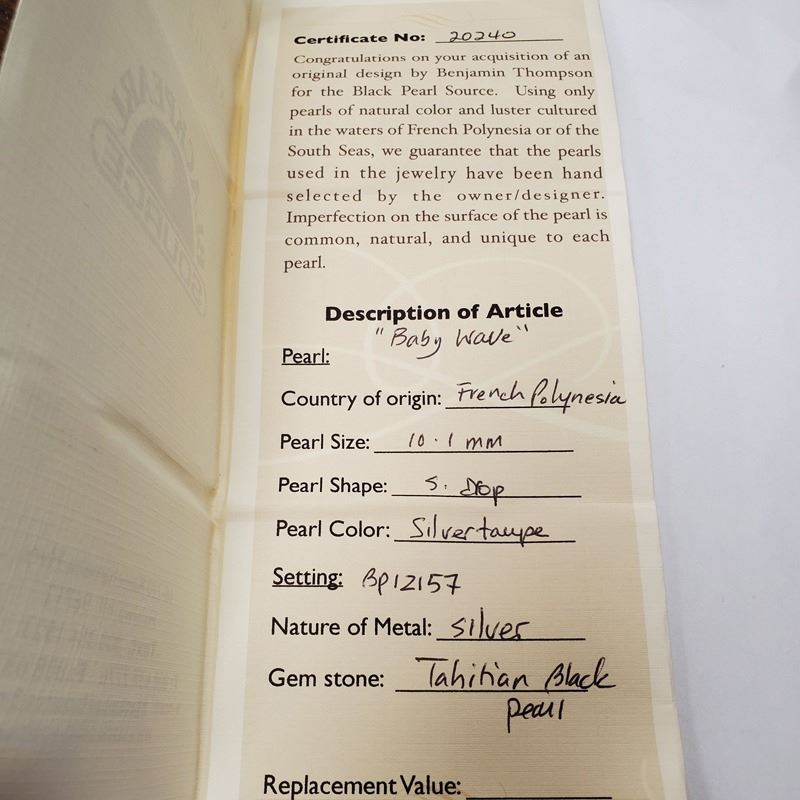 Certificate No: 20240
Congratulations on your acquisition of an
original design by Benjamin Thompson
for the Black Pearl Source. Using only
pearls of natural color and luster cultured
in the waters of French Polynesia or of the
South Seas, we guarantee that the pearls
used in the jewelry have been hand
selected by the owner/designer.
Imperfection on the surface of the pearl is
common, natural, and unique to each
pearl.
Description of Article
"Baby Wave"
Pearl:
Country of origin: French Polynesia
Pearl Size: 10.1 mm
Pearl Shape: S. Drop
Pearl Color: Silver taupe
Setting: BP12157
Nature of Metal: Silver
Gem stone: Tahitian Black
Pearl
Replacement Value: